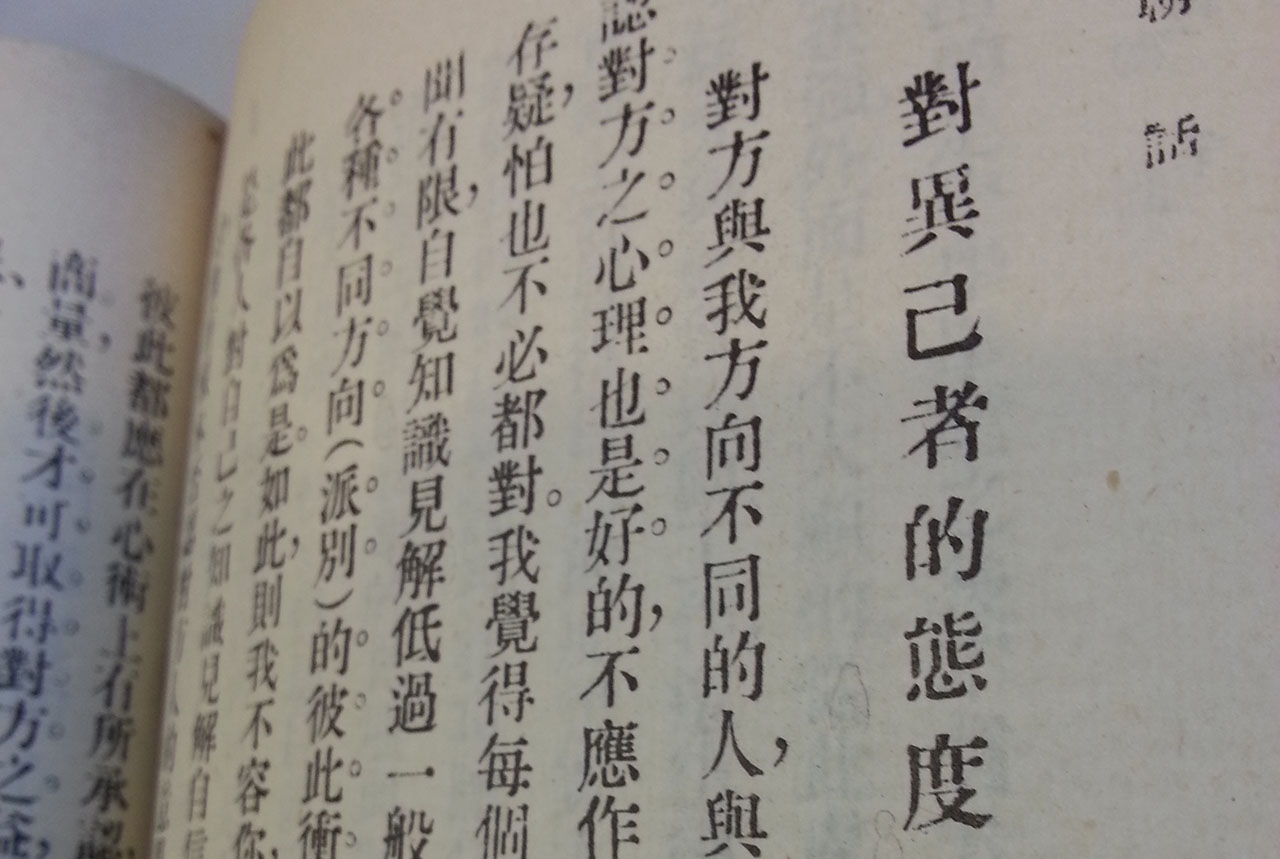 話
對異己者的態度
對方與我方向不同的人，與
認對方之心理也是好的，不應作
存疑，怕也不必都對。我覺得每個
聞有限，自覺知識見解低過一般
各種不同方向（派別）的彼此衝
此都自以爲是。如此，則我不容你，
各人對自己之知識見解自信
彼此都應在心術上有所承認
商量，然後才可取得對方之益，